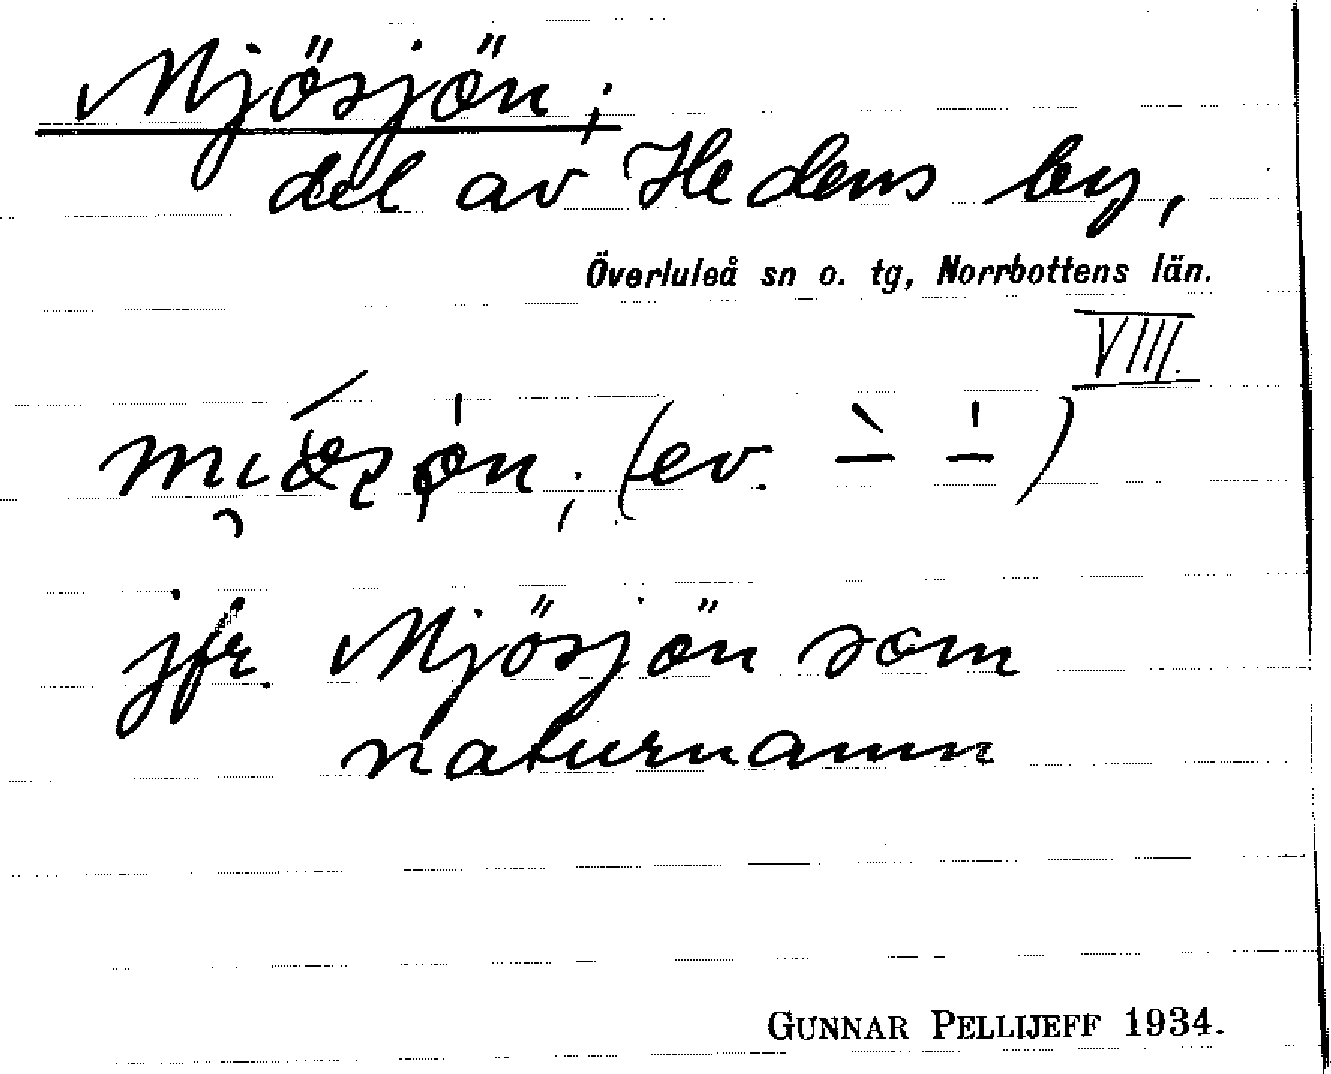 Mjösjön;
del av Hedens by,
Överluleå sn o. tg, Norrbottens län.
VIII.
(ev. –̀ –́)
jfr. Mjösjön som
naturnamn
GUNNAR PELLIJEFF 1934.